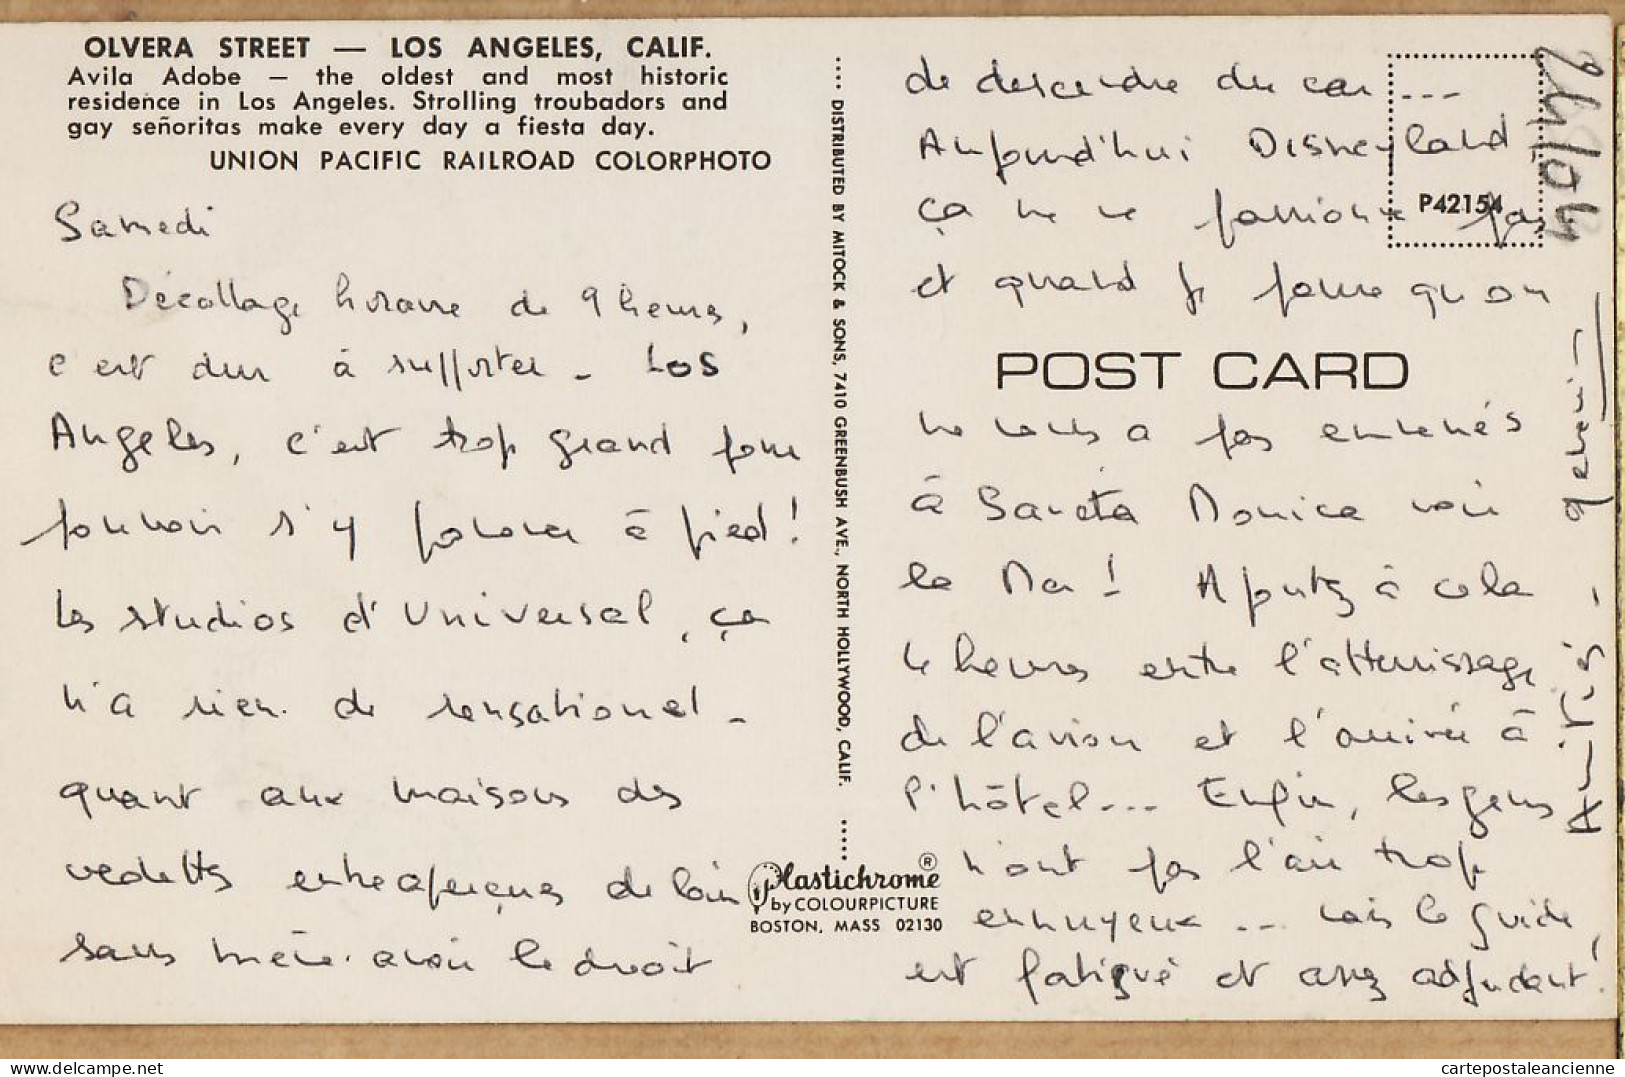 OLVERA STREET — LOS ANGELES, CALIF.
Avila Adobe — the oldest and most historic
residence in Los Angeles. Strolling troubadors and
gay señoritas make every day a fiesta day.
UNION PACIFIC RAILROAD COLORPHOTO
Samedi
Décallage horaire de 9 heures,
c'est dur à supporter - Los
Angeles, c'est trop grand pour
pouvoir s'y promener à pied!
Les studios d'Universal, ça
n'a rien de sensationnel -
quant aux maisons des
vedettes entreaperçues de loin
sans même avoir le droit
DISTRIBUTED BY MITOCK & SONS, 7410 GREENBUSH AVE., NORTH HOLLYWOOD, CALIF.
Plastichrome ®
by COLOURPICTURE
BOSTON, MASS 02130
de descendre du car ...
Aujourd'hui Disneyland
P42154
ça ne me passionne pas
et quand je pense qu'on
POST CARD
ne nous a pas emmenés
à Santa Monica voir
la Mer! Ajoutez à cela
4 heures entre l'atterrissage
de l'avion et l'arrivée à
l'hôtel... Enfin, les gens
n'ont pas l'air trop
ennuyeux ... mais le guide
est fatigué et assez adjudant!
Amitiés -
cartepostaleancienne